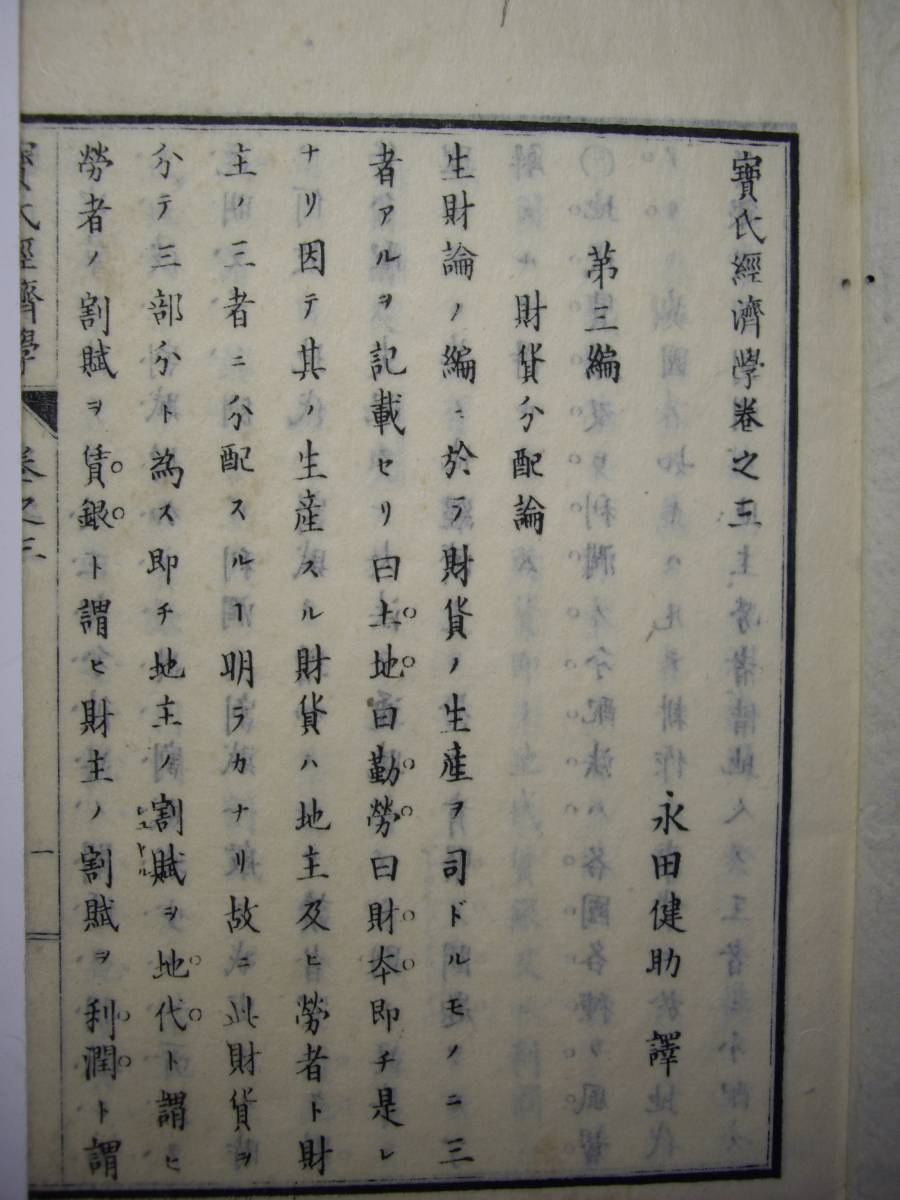 寶氏經濟學卷之三
永田健助 譯
第三編
財貨分配論
生財論ノ編ニ於テ財貨ノ生産ヲ司ドルモノニ三
者アルヲ記載セリ曰土地曰勤勞曰財本即チ是レ
ナリ因テ其ノ生産スル財貨ハ地主及ヒ勞者ト財
主ノ三者ニ分配スルヿ明ラカナリ故ニ此財貨ヲ
分テ三部分ト為ス即チ地主ノ割賦ヲ地代ト謂ヒ
勞者ノ割賦ヲ賃銀ト謂ヒ財主ノ割賦ヲ利潤ト謂
寶氏經濟學 卷之三 一